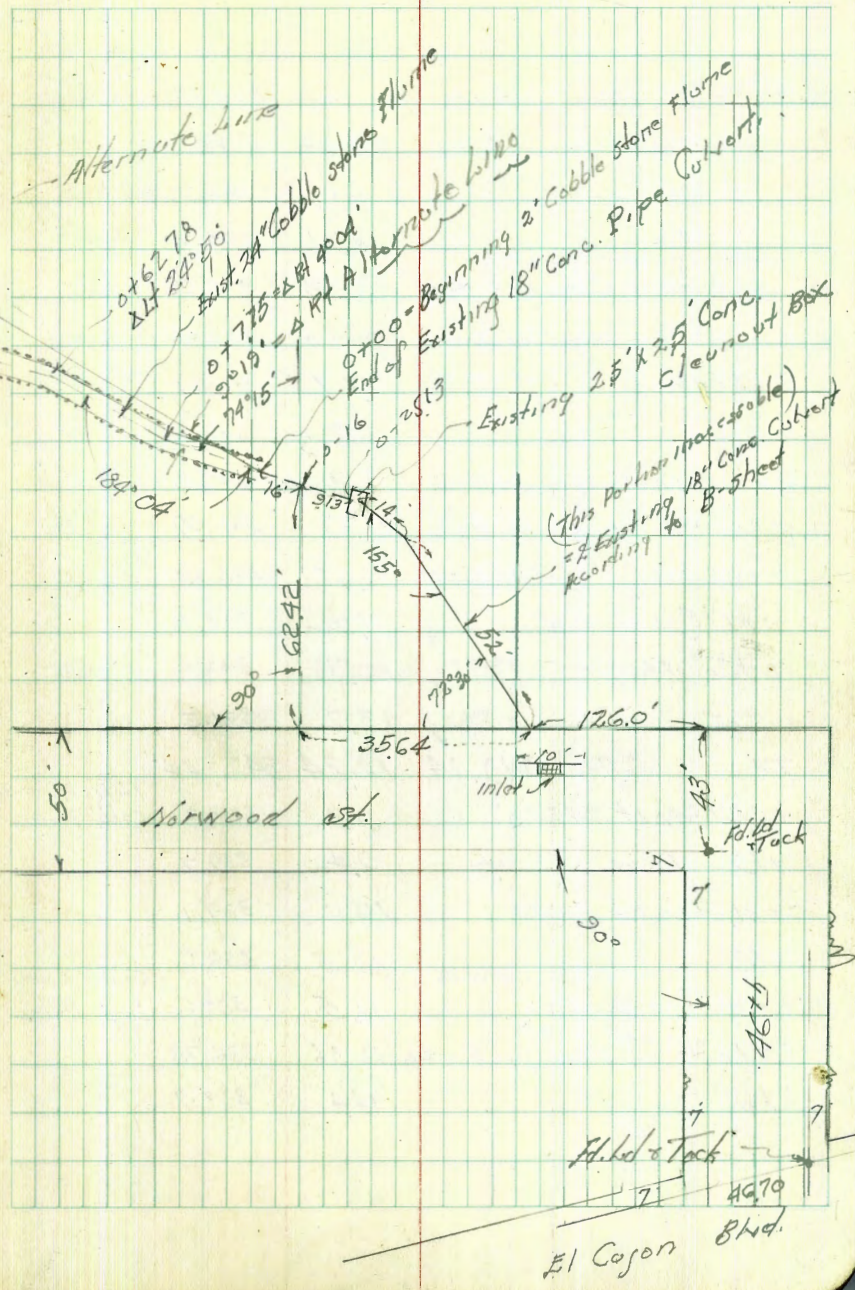 Alternate Line
0+62.78
Δ Lt 24°50'
Exist. 24" Cobble stone Flume
0+7.75 = Δ Rt 4°04'
9°19' = Δ Rt Alternate Line
74°15'
0+00 = Beginning 2' Cobble stone Flume
End of Existing 18" Conc. Pipe Culvert.
0-16
0-25.3
Existing 2.5' X 2.5' Conc.
Cleanout Box
(This portion inaccessible)
= ℄ Existing 18" Conc. Culvert
According to B-sheet
184°04'
16'
9.3
14'
155°
62.42'
52'
90°
72°30'
126.0'
35.64
10'
inlet
50'
43'
Norwood St.
Fd. Ld
+ Tack
7
7'
90°
46th
7'
7
Fd. Ld & Tack
7
46.70
El Cajon Blvd.